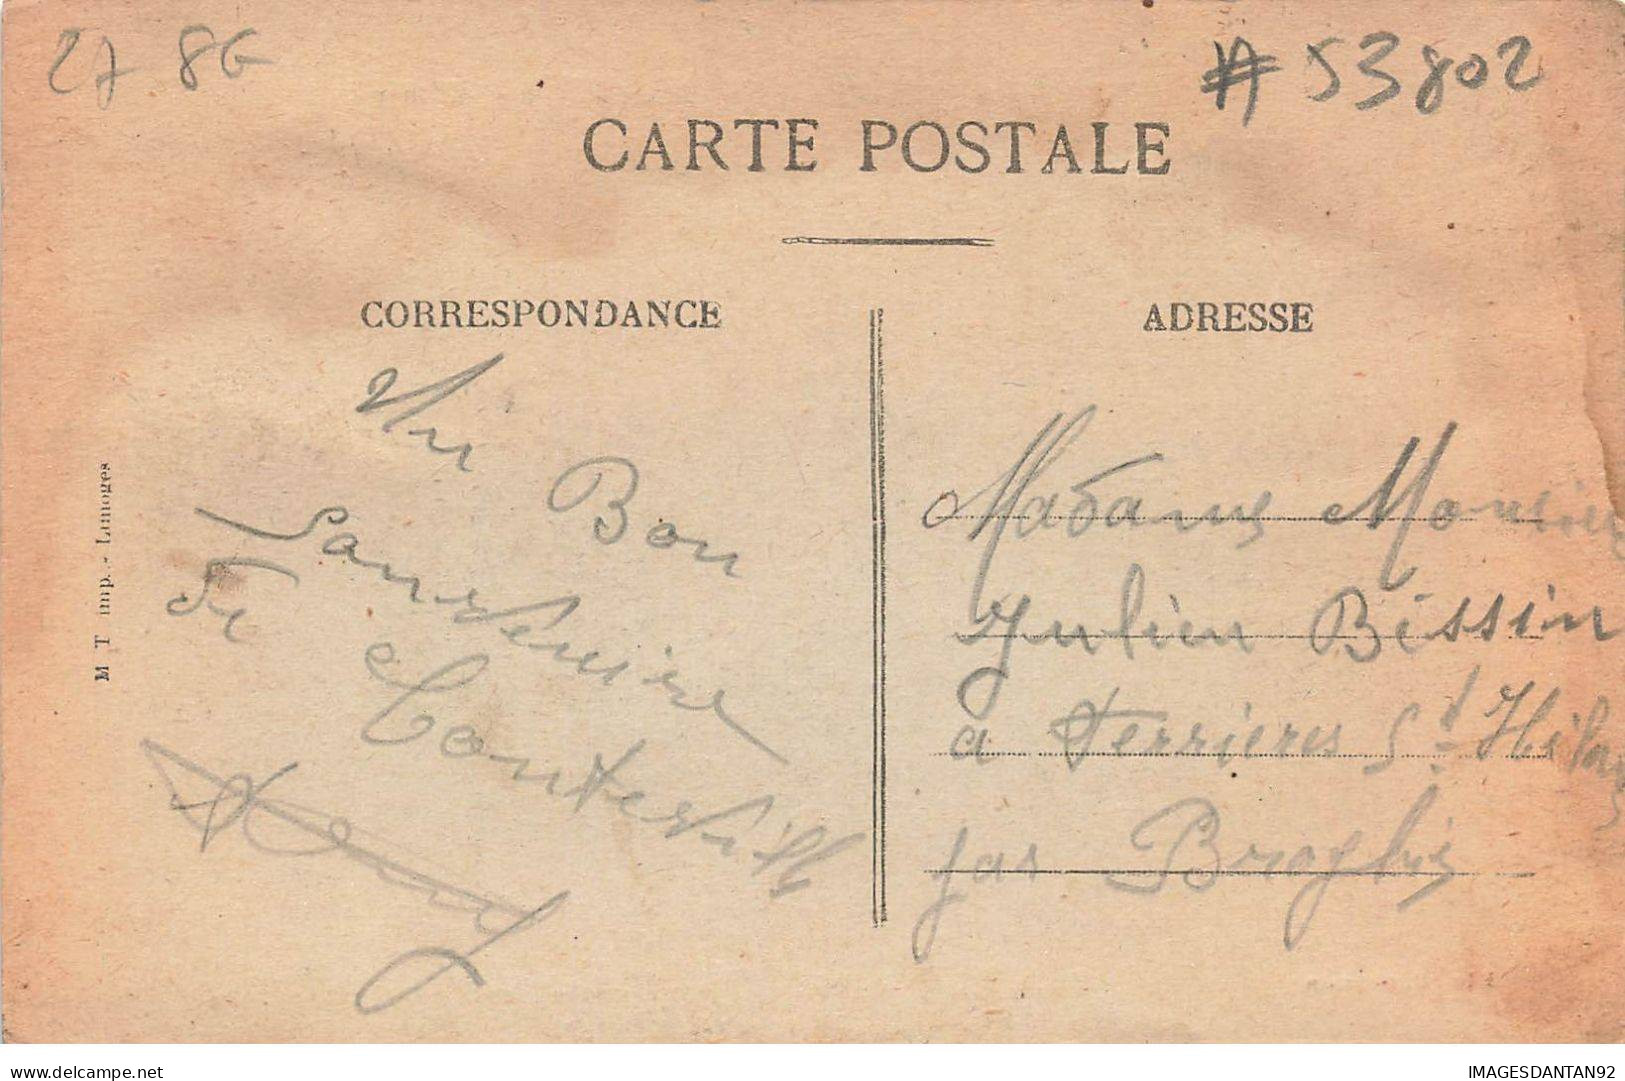 27 8G
# 53802
CARTE POSTALE
CORRESPONDANCE
ADRESSE
M T imp. - Limoges
Bon
Souvenire
de
Conteville
Madame Monsieu
Julien Bessin
a Ferrieres St Hilai
par Broglie
delcampe.net
IMAGESDANTAN92